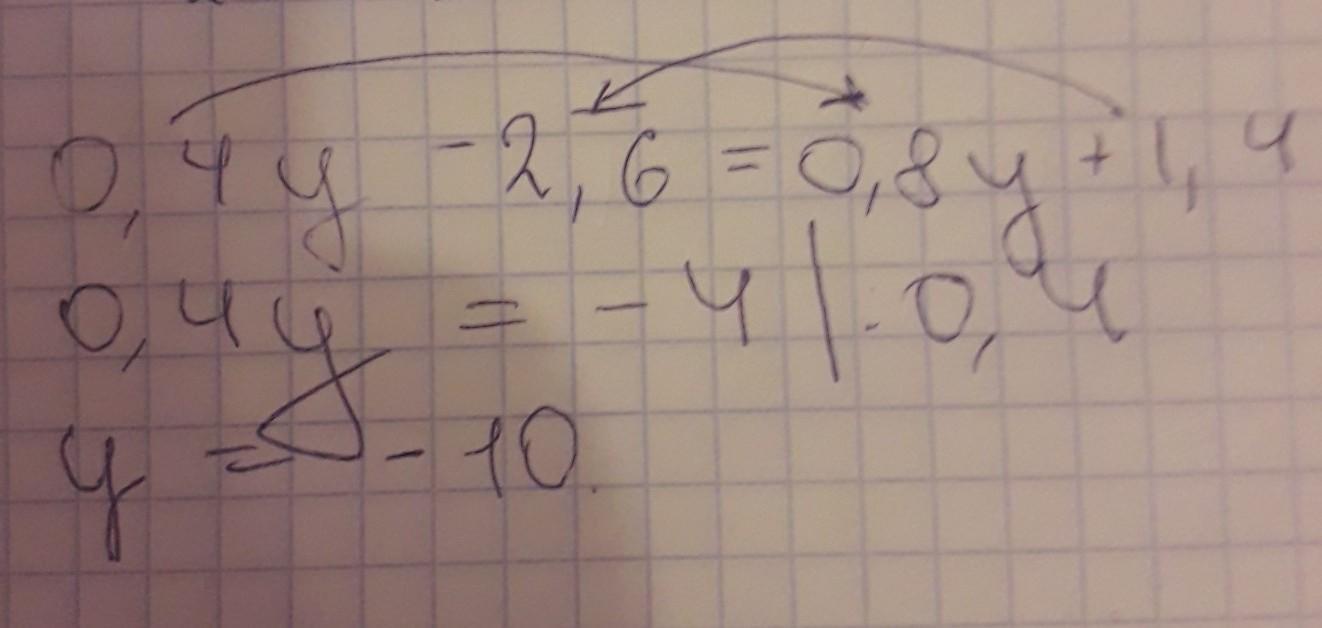 0,4y - 2,6 = 0,8y + 1,4
0,4y = - 4 | : 0,4
y = - 10.